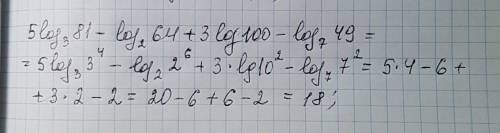 5log₃81 - log₂64 + 3lg100 - log₇49 =
= 5log₃3⁴ - log₂2⁶ + 3·lg10² - log₇7² = 5·4 - 6 +
+ 3·2 - 2 = 20 - 6 + 6 - 2 = 18;